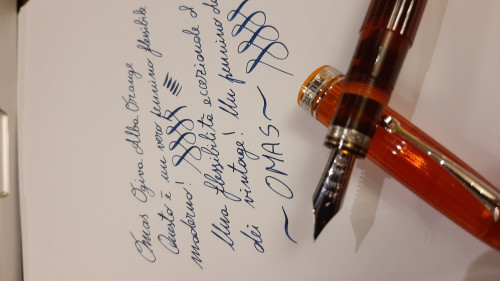 Omas Ogiva Alba Orange
Questo è un vero pennino flessibile
moderno!
Una flessibilità eccezionale d
dei vintage! Un pennino da
~ OMAS ~